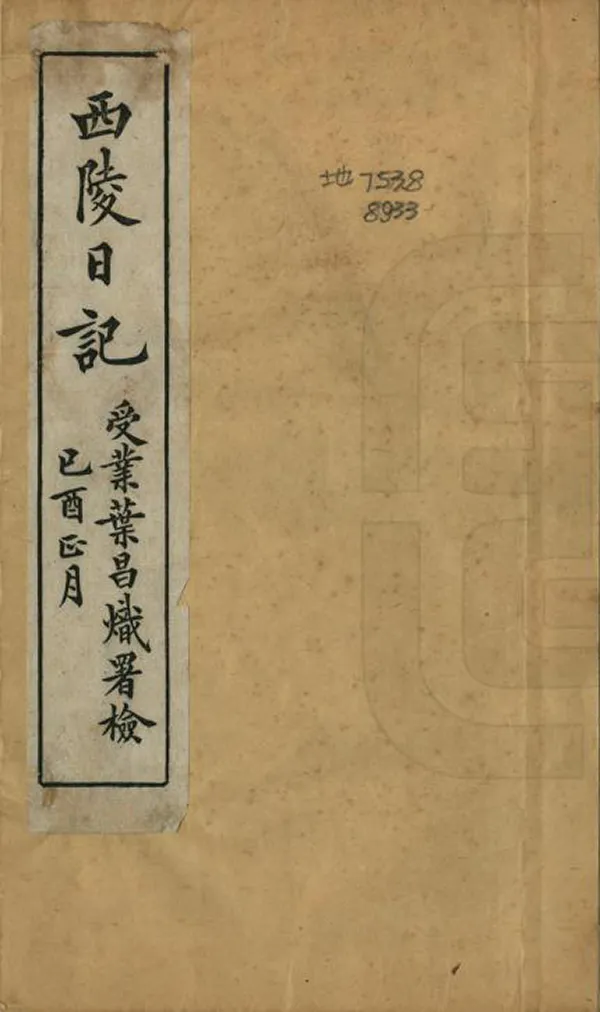 西陵日記
受業葉昌熾署檢
己酉正月
地7538
8933